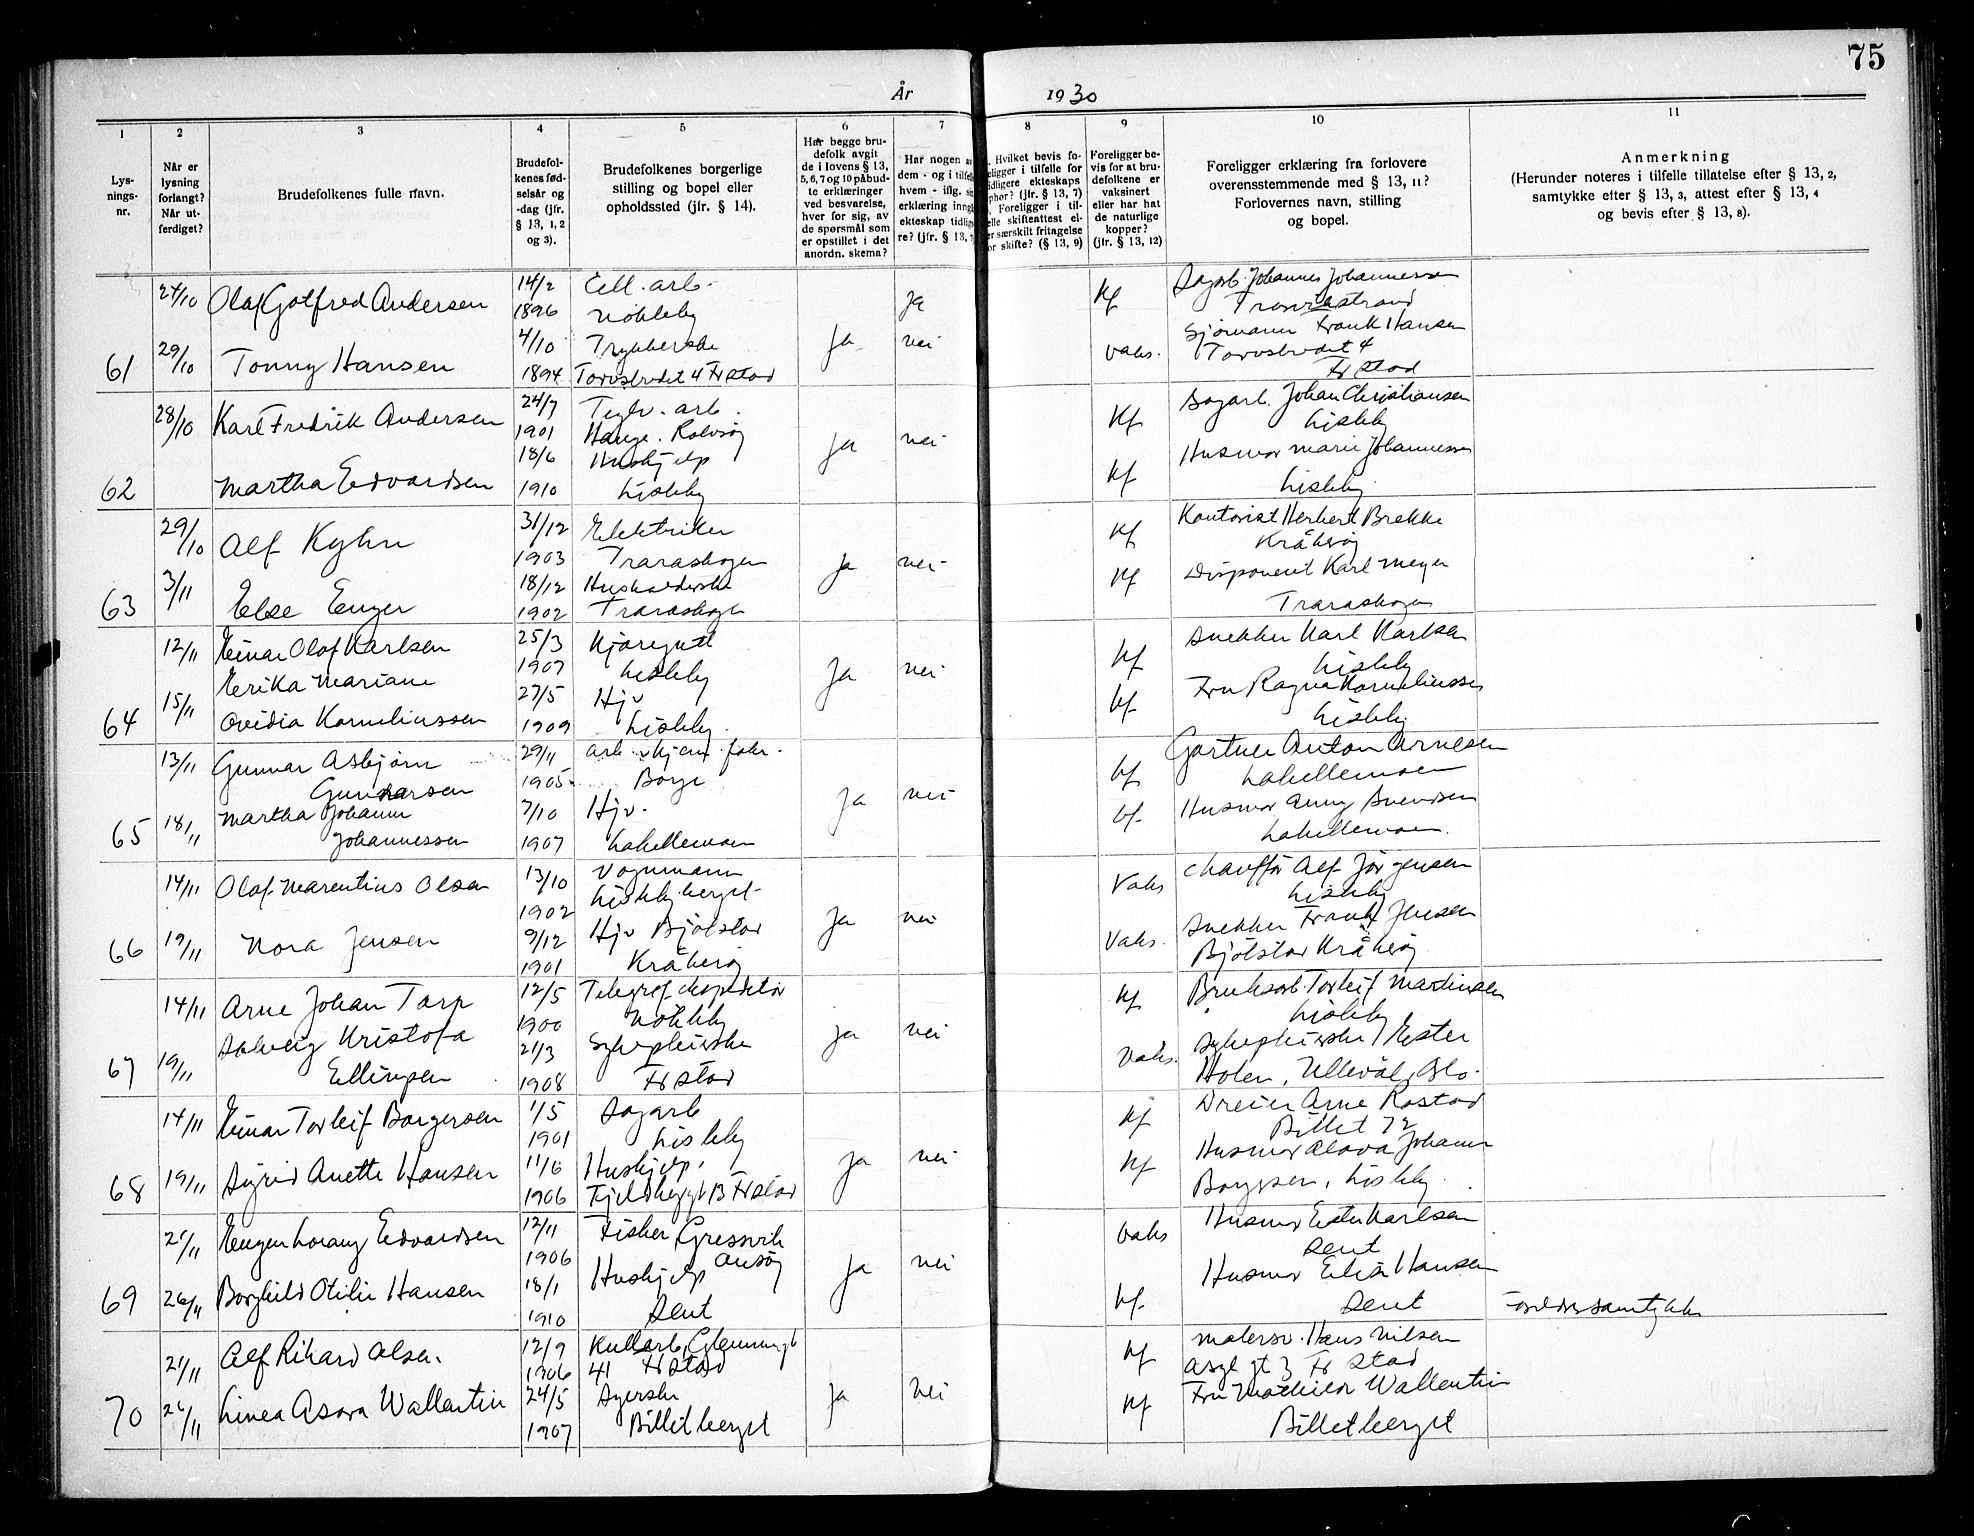 75
År 1930
1 2 3 4 5 6 7 8 9 10 11
Lysningsnr.
Når er lysning forlangt? Når utferdiget?
Brudefolkenes fulle navn.
Brudefolkenes fødselsår og -dag (jfr. § 13, 1, 2 og 3).
Brudefolkenes borgerlige stilling og bopel eller opholdssted (jfr. § 14).
Har begge brudefolk avgit de i lovens § 13, 5, 6, 7 og 10 påbudte erklæringer ved besvarelse, hver for sig, av de spørsmål som er opstillet i det anordn. skema?
Har nogen a
dem - og i tilfel
hvem - iflg. si
erklæring inng
ekteskap tidlig
re? (jfr. § 13, 7
Hvilket bevis fo-
religger i tilfelle for
tidligere ekteskaps
ophør? (jfr. § 13, 7)
Foreligger i til-
felle skifteattest el-
er særskilt fritagelse
for skifte? (§ 13, 9)
Foreligger bevis for at brudefolkene er vaksinert eller har hat de naturlige kopper? (jfr. § 13, 12)
Foreligger erklæring fra forlovere overensstemmende med § 13, 11? Forlovernes navn, stilling og bopel.
Anmerkning
(Herunder noteres i tilfelle tillatelse efter § 13, 2, samtykke efter § 13, 3, attest efter § 13, 4 og bevis efter § 13, 8).
24/10 Olaf Gotfred Andersen 14/2 1896 Cell. arb. Nökleby Ja Kf Sagarb. Johannes Johannessen
Trosvikstrand
61 29/10 Tonny Hansen 4/10 1894 Torvbrdet 4 Fr stad Ja nei vaks. Sjømann Frank Hansen
4
Fr stad
28/10 Karl Fredrik Andersen 24/7 1901 Teglv. arb. Hauge. Rolvsøy Kf Sagarb. Johan Christiansen
Lisleby
62 Martha Edvardsen 18/6 1910 Hushjelp Lisleby Ja nei Kf Husmor Marie Johannessen
Lisleby
29/10 Alf Kyhn 31/12 1903 Elektriker Traraskogen Kf Kontorist Herbert Brekke
Kråkerøy
63 3/11 Else Enger 18/12 1902 Husholderske Traraskogen Ja nei Kf Disponent Karl Meyer
Traraskogen
12/11 Einar Olaf Karlsen 25/3 1907 Kjøregutt Lisleby Kf Snekker Karl Karlsen
Lisleby
64 15/11 Erika Mariane
Ovidia Korneliussen 27/5 1909 Hjv Lisleby Ja nei Kf Fru Ragna Korneliussen
Lisleby
13/11 Gunnar Asbjørn
Gundersen 29/11 1905 Arb. v kjem. fabr. Borge Kf Gartner Anton Arnesen
Lahellemoen
65 18/11 Martha Johanne
Johannessen 7/10 1907 Hjv. Lahellemoen Ja nei Kf Husmor Anny Svendsen
Lahellemoen
14/11 Olaf Marentius Olsen 13/10 1902 Vognmann Lislebyberget Vaks Chauffør Alf Jørgensen
Lisleby
66 19/11 Nora Jensen 9/12 1901 Hjv Bjølstad Kråkerøy Ja nei Vaks. Snekker Frank Jensen
Bjølstad Kråkerøy
14/11 Arne Johan Tarp 12/5 1900 Telegrafekspeditør Nökleby Kf Bruksarb. Torleif Martinsen
Lisleby
67 19/11 Solveig Kristofa
Ellingsen 21/3 1908 Sykepleierske Fr stad Ja nei Vaks. Sykepleierske Ester
Holen, Ullevål, Oslo.
14/11 Einar Torleif Borgersen 1/5 1901 Sagarb Lisleby Kf Dreier Arne Rostad
Billet 72
68 19/11 Sigrid Anette Hansen 11/6 1906 Hushjelp, Fr stad Ja nei Kf Husmor Olava Johanne
Borgersen, Lisleby
21/11 Eugen Lorang Edvardsen 12/11 1906 Fisker Gressvik Onsøy Vaks Husmor Ester Karlsen
Sent
69 26/11 Borghild Otilie Hansen 18/1 1910 Hushjelp Sent Ja nei Kf Husmor Elise Hansen
Sent Foreldresamtykke
21/11 Alf Rikard Olsen. 12/9 1906 Kullarb. Glemmengt 41 Fr stad Kf Malersv. Hans Nilsen
Asylgt 3 Fr stad
70 26/11 Linea Asora Wallentin 24/5 1907 Syerske Billetberget Ja Nei Kf Fru Mathilda Wallentin
Billetberget